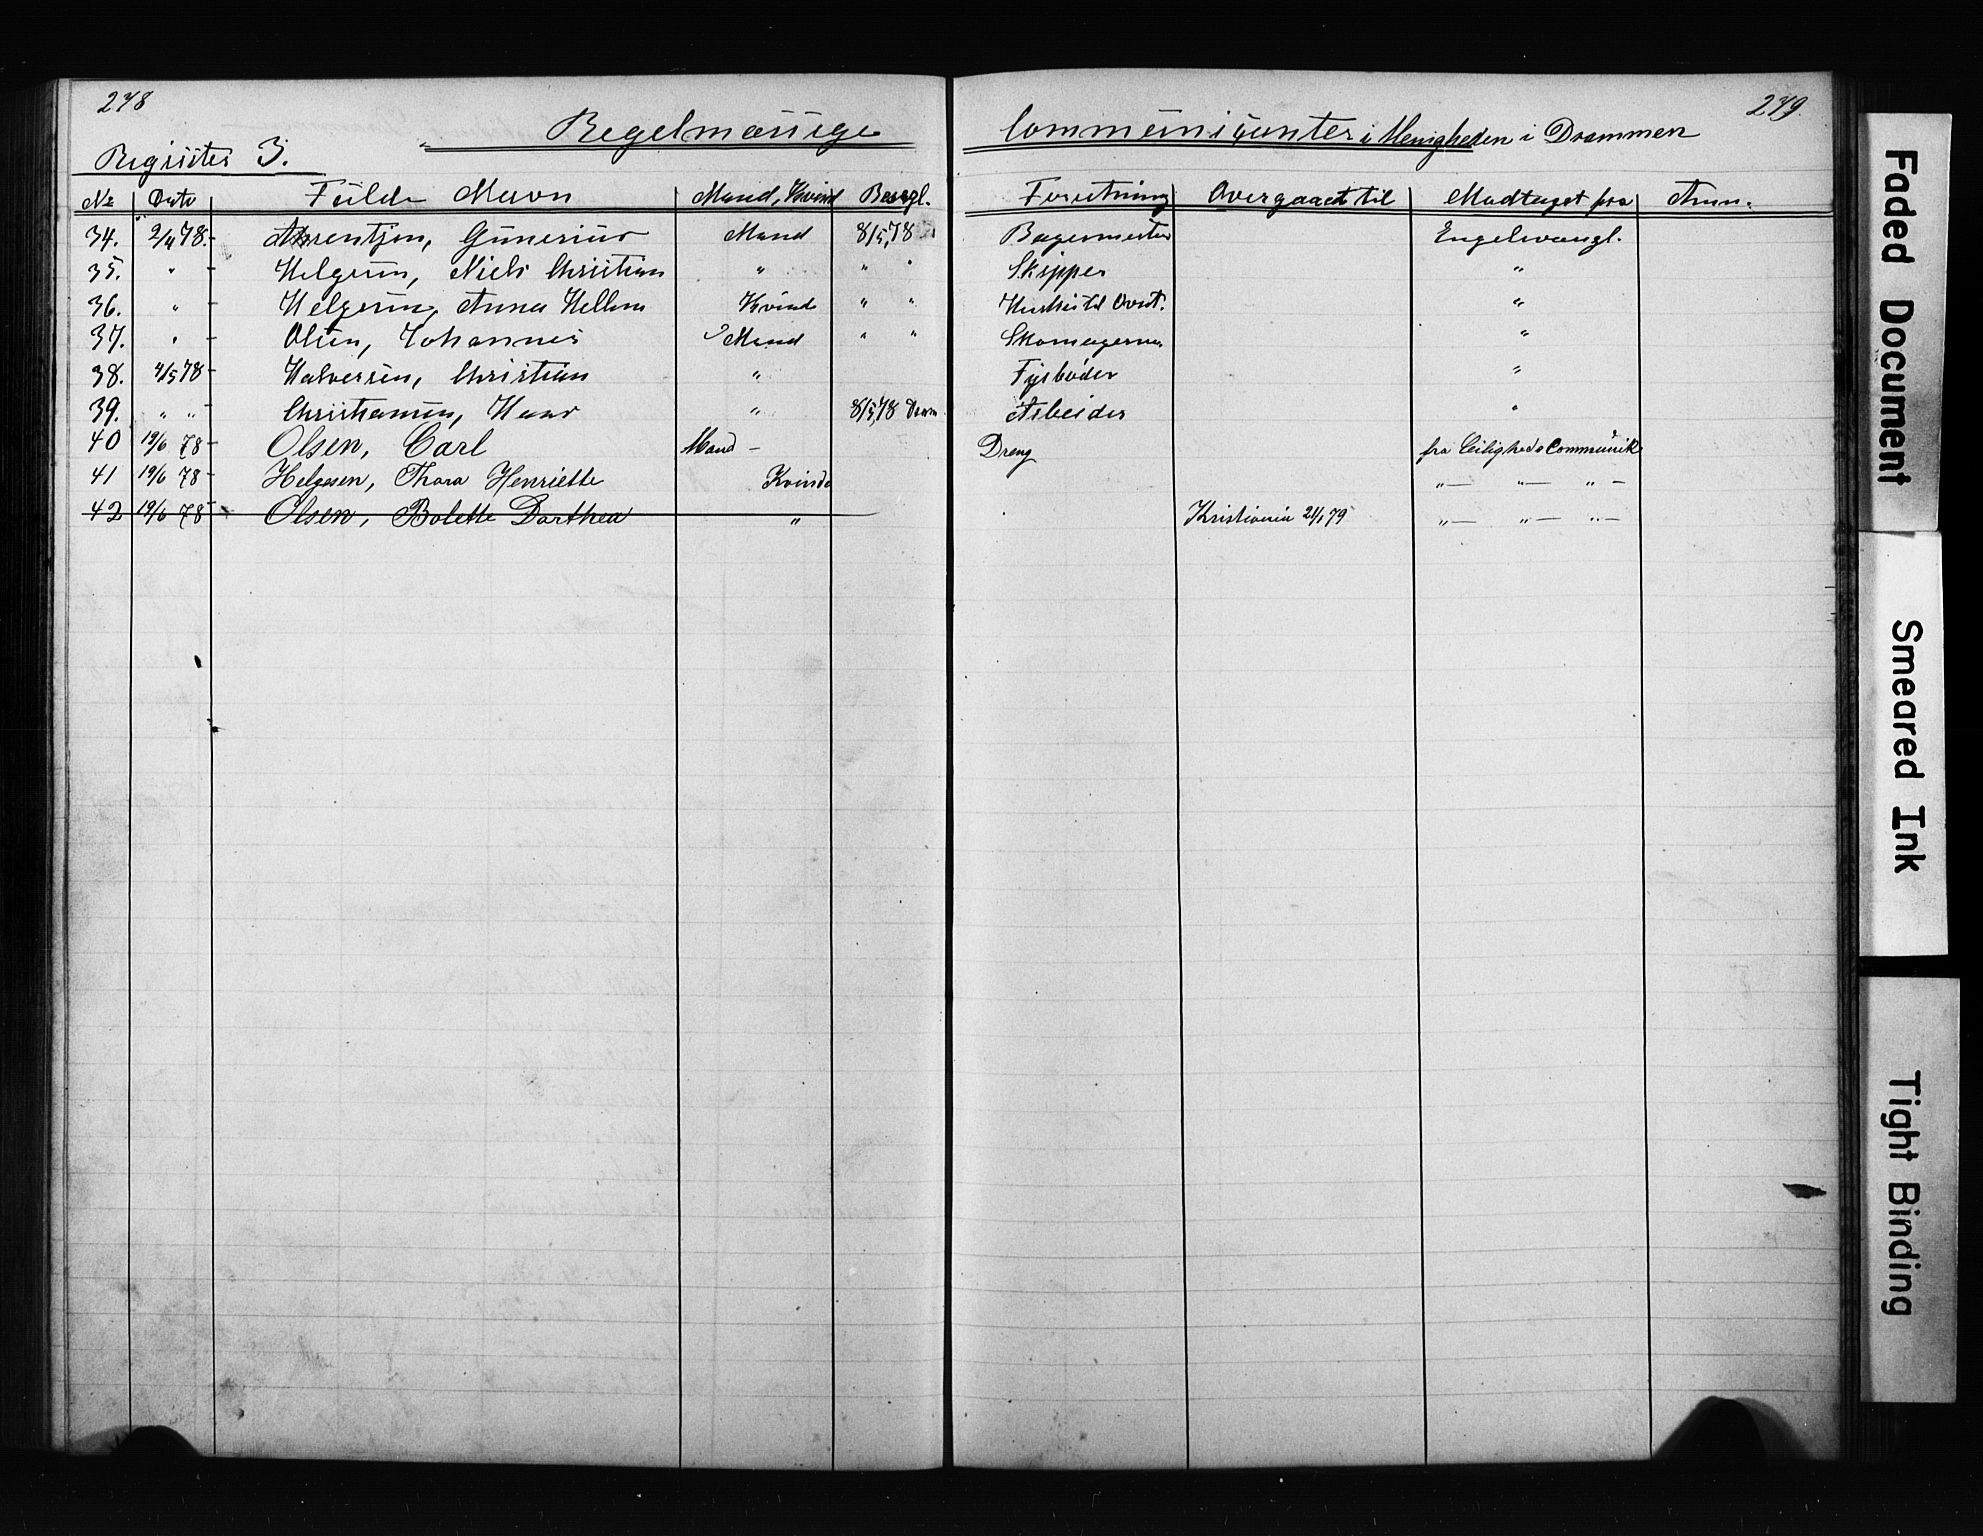 278
279.
Regelmæssige Communicanter i Menigheden i Drammen
Register 3.
No Dato Fulde Navn Mand, Kvind Besegl. Forretning Overgaaet til Modtaget fra Anm.
34. 2/4 78. Arrentsen, Gunerius Mand 8/5 78 Bagermester Engelevangl.
35. " Helgesen, Niels Christian " " " Skipper "
36. " Helgesen, Anna Hellene Kvind " " "
37. " Olsen, Johannes Mand " " Skomagerm. "
38. 4/5 78 Halversen, Christian " Fyrbøder "
39. " " Christiansen, Hans " 8/5 78 Arbeider "
40 19/6 78 Olsen, Carl Mand – Dreng fra Leiligheds Communik
41 19/6 78 Helgesen, Thora Henriette Kvinde "— "— " –
42 19/6 78 Olsen, Bolette Dorthea " Kristiania 21/1 79 "— "— "–
Faded Document
Smeared Ink
Tight Binding